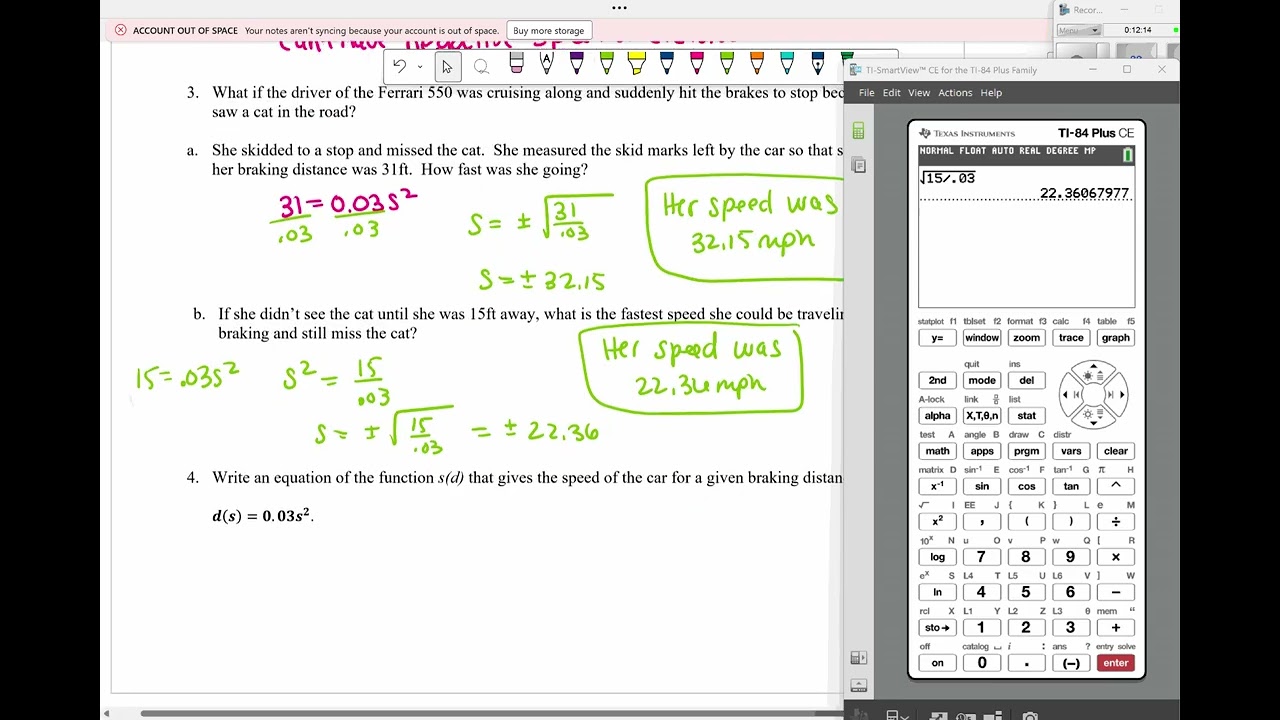 •••
Recor...
ACCOUNT OUT OF SPACE Your notes aren't syncing because your account is out of space. Buy more storage
Menu
0:12:14
TI-SmartView™ CE for the TI-84 Plus Family
File Edit View Actions Help
3. What if the driver of the Ferrari 550 was cruising along and suddenly hit the brakes to stop bec
saw a cat in the road?
a. She skidded to a stop and missed the cat. She measured the skid marks left by the car so that s
her braking distance was 31ft. How fast was she going?
31 = 0.03s²
.03 .03
s = ± √31/.03
s = ± 32.15
Her speed was
32.15 mph
b. If she didn't see the cat until she was 15ft away, what is the fastest speed she could be traveli
braking and still miss the cat?
15 = .03s²
s² = 15/.03
s = ± √15/.03 = ± 22.36
Her speed was
22.36 mph
4. Write an equation of the function s(d) that gives the speed of the car for a given braking distan
d(s) = 0.03s².
TEXAS INSTRUMENTS TI-84 Plus CE
NORMAL FLOAT AUTO REAL DEGREE MP
√15/.03
22.36067977
statplot f1 tblset f2 format f3 calc f4 table f5
y= window zoom trace graph
quit ins
2nd mode del
A-lock link list
alpha X,T,θ,n stat
test A angle B draw C distr
math apps prgm vars clear
matrix D sin⁻¹ E cos⁻¹ F tan⁻¹ G π H
x⁻¹ sin cos tan ^
√ I EE J { K } L e M
x² , ( ) ÷
10ˣ N u O v P w Q [ R
log 7 8 9 ×
eˣ S L4 T L5 U L6 V ] W
ln 4 5 6 −
rcl X L1 Y L2 Z L3 θ mem "
sto→ 1 2 3 +
off catalog ⎵ i : ans ? entry solve
on 0 . (−) enter